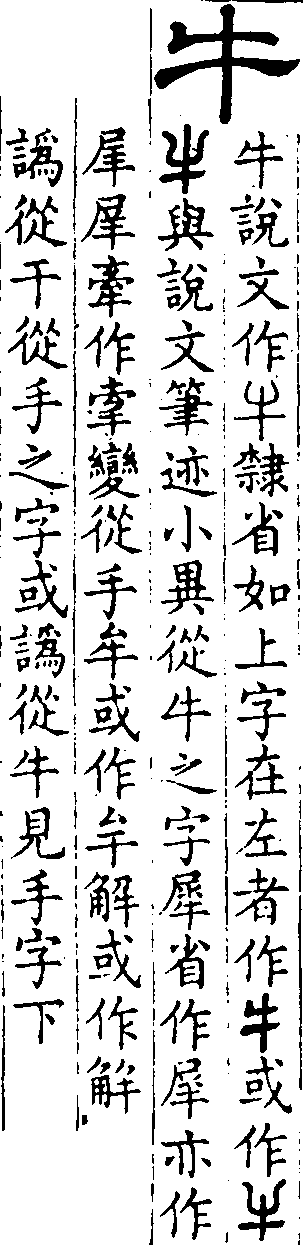 牛
牛說文作牛隸省如上字在左者作牛或作
與說文筆迹小異從牛之字犀省作犀亦作
牽作變從手牟或作解或作
譌從干從手之字或譌從牛見手字下